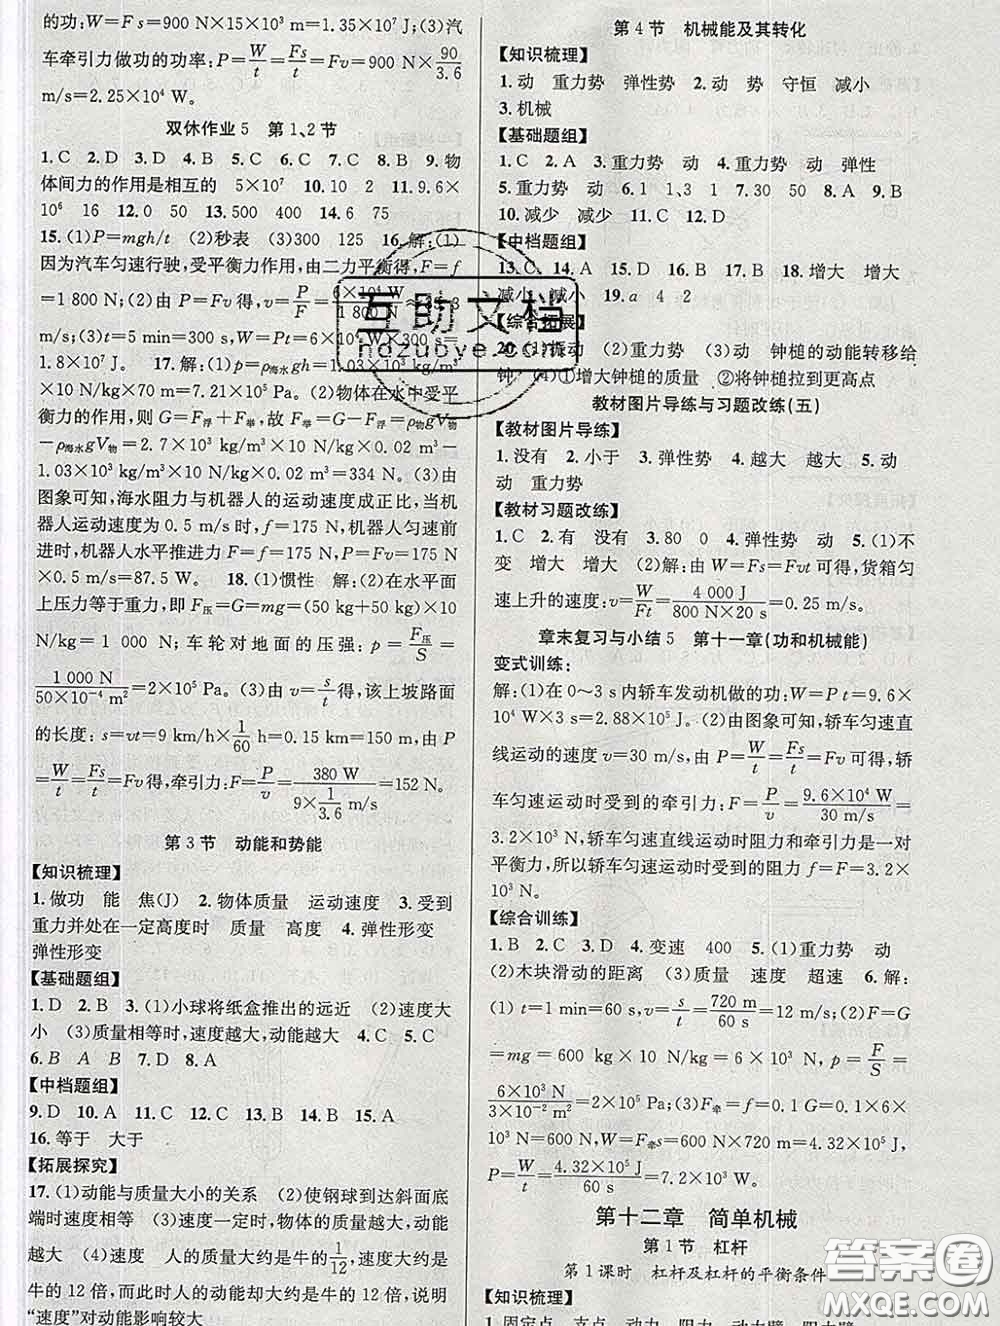 的功:W=Fs=900 N×15×10³ m=1.35×10⁷ J;(3)汽
车牵引力做功的功率:P=W/t=Fs/t=Fv=900 N×90/3.6
m/s=2.25×10⁴ W.
双休作业5 第1、2节
1.C 2.D 3.D 4.B 5.C 6.C 7.C 8.B 9.物
体间力的作用是相互的 5×10⁷ 10.10 2 11.9.6×
10⁶ 16 12.0 50 13.500 400 14.6 75
15.(1)P=mgh/t (2)秒表 (3)300 125 16.解:(1)
因为汽车匀速行驶,受平衡力作用,由二力平衡得,F=f
=1 800 N;(2)由P=Fv得,v=P/F=6×10⁴ W/1 800 N≈
m/s;(3)t=5 min=300 s,W=Pt=6×10⁴ W×300 s=
1.8×10⁷ J. 17.解:(1)p=ρ海水gh=1.03×10³ kg/m³
×10 N/kg×70 m=7.21×10⁵ Pa;(2)物体在水中受平
衡力的作用,则G=F浮+F举,故F举=G-F浮=ρ物gV物
-ρ海水gV物=2.7×10³ kg/m³×10 N/kg×0.02 m³-
1.03×10³ kg/m³×10 N/kg×0.02 m³=334 N.(3)由
图象可知,海水阻力与机器人的运动速度成正比,当机
器人运动速度为0.5 m/s时,f=175 N,机器人匀速前
进时,机器人水平推进力F=f=175 N,P=Fv=175 N
×0.5 m/s=87.5 W. 18.(1)惯性 解:(2)在水平面
上压力等于重力,即F压=G=mg=(50 kg+50 kg)×10
N/kg=1 000 N;车轮对地面的压强:p=F压/S=
1 000 N/50×10⁻⁴ m²=2×10⁵ Pa;(3)由v=s/t得,该上坡路面
的长度:s=vt=9 km/h×1/60 h=0.15 km=150 m,由P
=W/t=Fs/t=Fv得,牵引力:F=P/v=380 W/9×1/3.6 m/s=152 N.
第3节 动能和势能
【知识梳理】
1.做功 能 焦(J) 2.物体质量 运动速度 3.受到
重力并处在一定高度时 质量 高度 4.弹性形变
弹性形变
【基础题组】
1.D 2.B 3.(1)小球将纸盒推出的远近 (2)速度大
小 (3)质量相等时,速度越大,动能越大 4.C 5.C
6.B A B 7.D 8.A
【中档题组】
9.D 10.A 11.C 12.B 13.B 14.B 15.A
16.等于 大于
【拓展探究】
17.(1)动能与质量大小的关系 (2)使钢球到达斜面底
端时速度相等 (3)速度一定时,物体的质量越大,动能
越大 (4)速度 人的质量大约是牛的1/12,速度大约是
牛的12倍,而此时人的动能却大约是牛的12倍,说明
“速度”对动能影响较大
第4节 机械能及其转化
【知识梳理】
1.动 重力势 弹性势 2.动 势 守恒 减小
3.机械
【基础题组】
1.C 2.A 3.重力势 动 4.重力势 动 弹性
5.重力势 动 6.1 1、3 1 7.30 50 8.A 9.B
10.减少 减少 11.C 12.D
【中档题组】
13.C 14.A 15.D 16.D 17.B 18.增大 增大
减小 减小 19.a 4 2
【综合拓展】
20.(1)振动 (2)重力势 (3)动 钟槌的动能转移给
钟 (4)①增大钟槌的质量 ②将钟槌拉到更高点
教材图片导练与习题改练(五)
【教材图片导练】
1.没有 2.小于 3.弹性势 4.越大 越大 5.动
动 重力势
【教材习题改练】
1.C 2.有 没有 3.80 0 4.弹性势 动 5.(1)不
变 增大 增大 (2)解:由W=Fs=Fvt可得,货箱匀
速上升的速度:v=W/Ft=4 000 J/800 N×20 s=0.25 m/s.
章末复习与小结5 第十一章(功和机械能)
变式训练:
解:(1)在0~3 s内轿车发动机做的功:W=Pt=9.6×
10⁴ W×3 s=2.88×10⁵ J.(2)由图象可知,轿车匀速直
线运动的速度v=30 m/s,由P=W/t=Fs/t=Fv可得,轿
车匀速运动时受到的牵引力:F=P/v=9.6×10⁴ W/30 m/s=
3.2×10³ N,轿车匀速直线运动时阻力和牵引力是一对
平衡力,所以轿车匀速运动时受到的阻力f=F=3.2×
10³ N.
【综合训练】
1.B 2.C 3.D 4.变速 400 5.(1)重力势 动
(2)木块滑动的距离 (3)质量 速度 超速 6.解:
(1)t=1 min=60 s,v=s/t=720 m/60 s=12 m/s;(2)F=G
=mg=600 kg×10 N/kg=6×10³ N,p=F/S=
6×10³ N/3×10⁻² m²=2×10⁵ Pa;(3)F牵=f=0.1 G=0.1×6×
10³ N=600 N,W=F牵s=600 N×720 m=4.32×10⁵ J,
P=W/t=4.32×10⁵ J/60 s=7.2×10³ W.
第十二章 简单机械
第1节 杠杆
第1课时 杠杆及杠杆的平衡条件
【知识梳理】
1.固定点 支点 动力 阻力 动力臂 阻力臂
互助文档
hdzuoye.com
答案圈
MXQE.COM